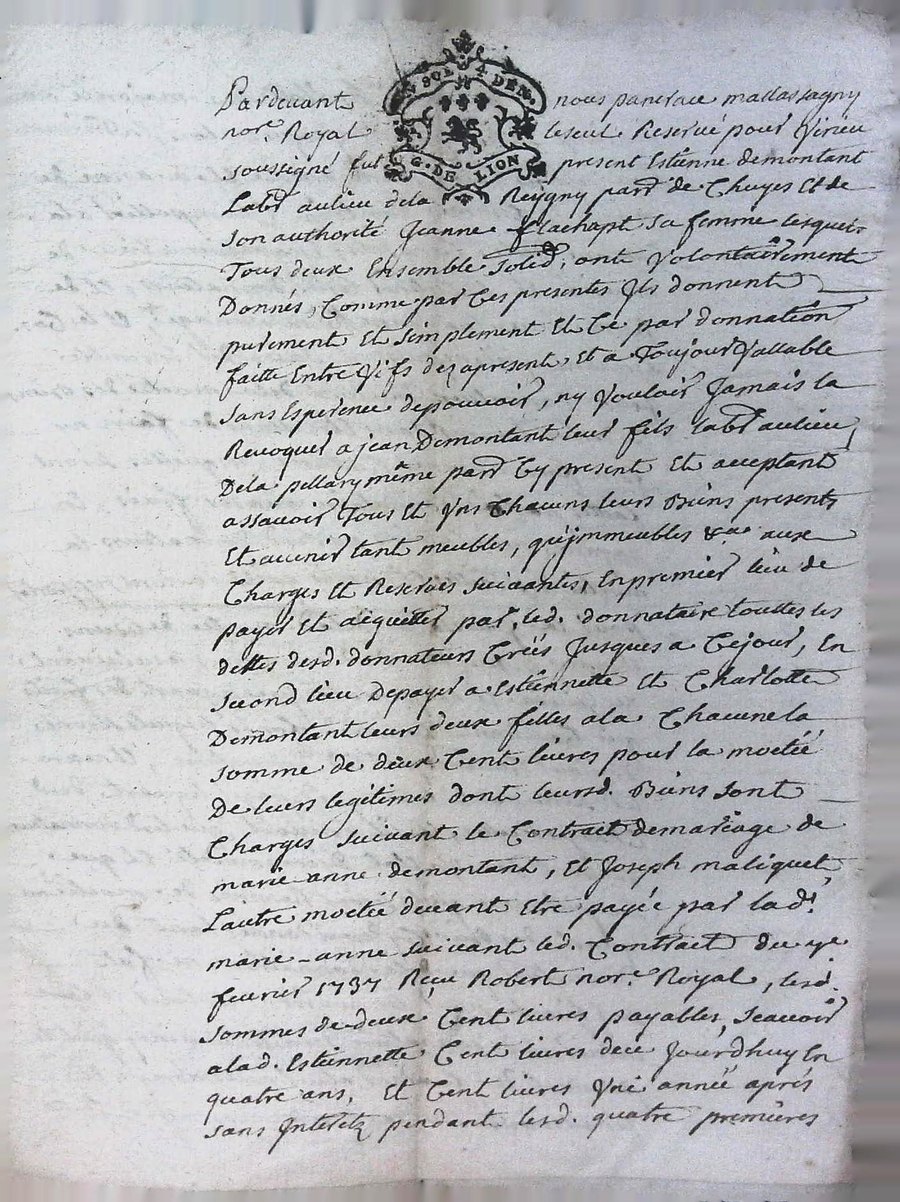 UN SOL 4 DEN.
G. DE LION
Pardevant nous pancrace mallassagny
nore. Royal le seul Reservé pour Virieu
soussigné fut present Estienne demontant
Labr. au lieu dela Reygny parr. de Chuyes Et de
son authorité Jeanne flachapt sa femme lesquels
Tous deux Ensemble solid. ont Volontairement
Donnés, Comme par Ces presentes Ils donnent
purement Et simplement Et Ce par donnation
faitte Entre Vifs dez apresent, Et a Toujour Vallable
sans Esperence depouvoir, ny Vouloir Jamais la
Revoquer a jean Demontant leur fils labr. au lieu
Dela pellary même parr. Cy present Et acceptant
assavoir Tous Et Vns Chacuns leurs Biens presents
Et avenir tant meubles, qu'jmmeubles &a. aux
Charges Et Reserves suivantes, En premier lieu de
payer Et acquitter par led. donnataire touttes les
dettes desd. donnateurs Créés Jusques a Cejour, En
second lieu Depayer a Estiennette Et Charlotte
Demontant leurs deux filles ala Chacune la
somme de deux Cent livres pour la moetié
De leurs legitimes dont leursd. Biens sont
Charges suivant le Contract demariage de
marie anne demontant, Et Joseph maliquet,
Lautre moetié devant Etre payée par lad.
marie-anne suivant led. Contract du
fevrier 1737 Reçu Robert nore. Royal, lesd.
sommes de deux Cent livres payables, Scavoir
alad. Estiennette Cent livres dece Jourdhuy En
quatre ans, Et Cent livres Vne année après
sans Interetz pendant lesd. quatre premières